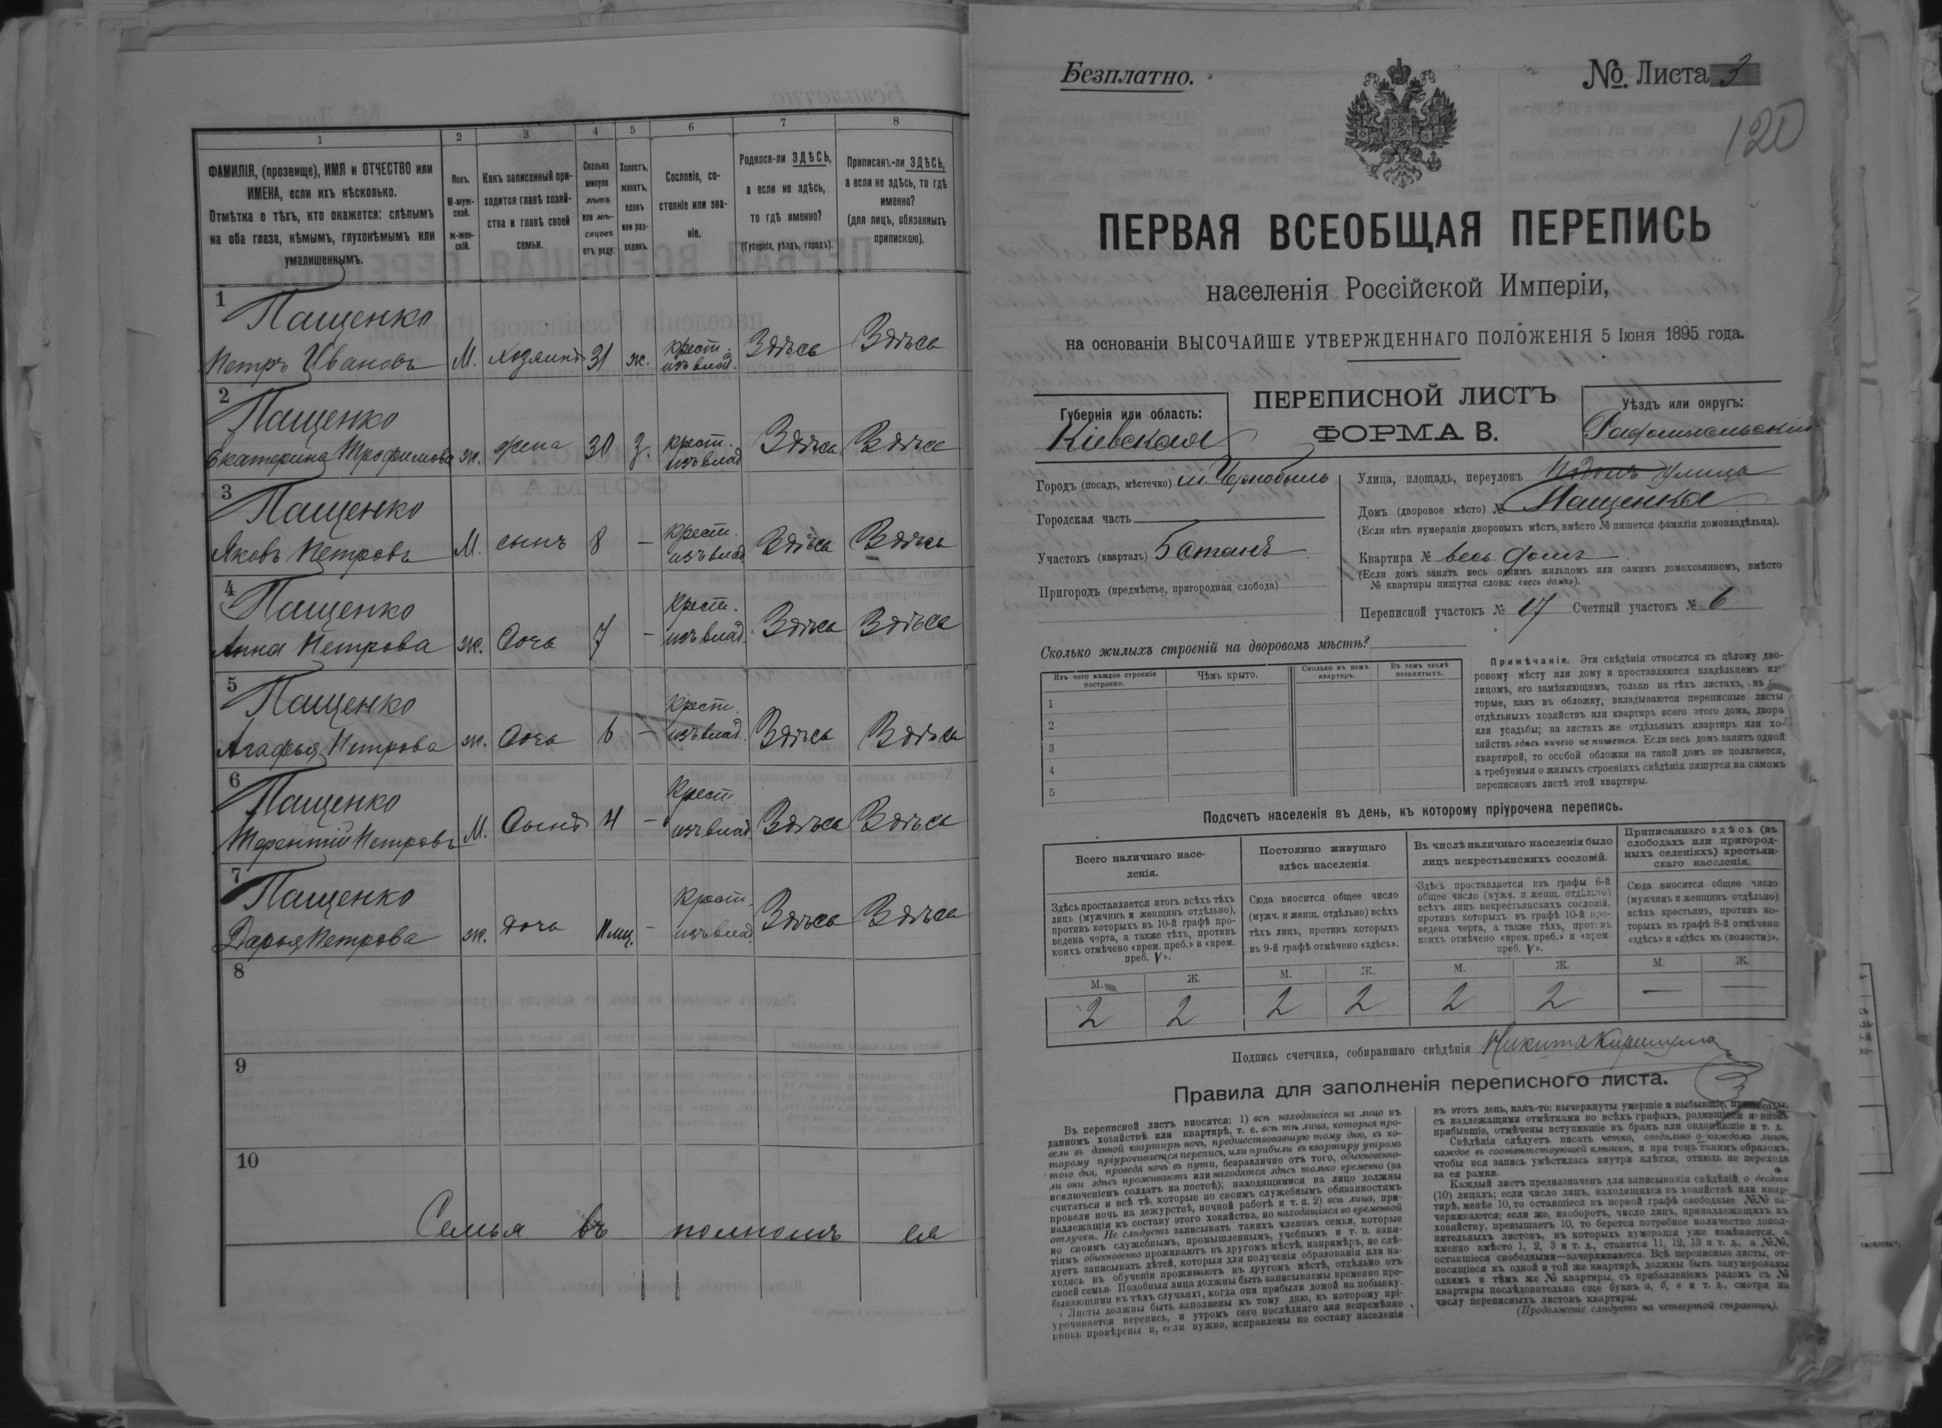 1
2
3
4
5
6
7
8
ФАМИЛІЯ, (прозвище), ИМЯ и ОТЧЕСТВО или
ИМЕНА, если ихъ нѣсколько.
Отмѣтка о тѣхъ, кто окажется: слѣпымъ
на оба глаза, нѣмымъ, глухонѣмымъ или
умалишеннымъ.
Полъ.
М-муж-
ской.
ж-жен-
скій.
Какъ записанный при-
ходится главѣ хозяй-
ства и главѣ своей
семьи.
Сколько
минуло
лѣтъ
или мѣ-
сяцевъ
отъ роду.
Холостъ,
женатъ,
вдовъ
или раз-
веденъ.
Сословіе, со-
стояніе или зва-
ніе.
Родился-ли ЗДѢСЬ,
а если не здѣсь,
то гдѣ именно?
(Губернія, уѣздъ, городъ).
Приписанъ-ли ЗДѢСЬ,
а если не здѣсь, то гдѣ
именно?
(для лицъ, обязанныхъ
припискою).
1 Пащенко
Петръ Ивановъ М. хозяинъ 31 ж. крест. изъ влад. Здѣсь Здѣсь
2 Пащенко
Екатерина Трофимова ж. жена 30 з. крест. изъ влад. Здѣсь Здѣсь
3 Пащенко
Яковъ Петровъ М. сынъ 8 — крест. изъ влад. Здѣсь Здѣсь
4 Пащенко
Анна Петрова ж. дочь 7 — крест. изъ влад. Здѣсь Здѣсь
5 Пащенко
Агафья Петрова ж. дочь 6 — крест. изъ влад. Здѣсь Здѣсь
6 Пащенко
Терентій Петровъ М. Сынъ 4 — Крест. изъ влад. Здѣсь Здѣсь
7 Пащенко
Дарья Петрова ж. дочь 11 мц. — Крест. изъ влад. Здѣсь Здѣсь
8
9
10
Семья въ полномъ
Безплатно.
№ Листа 3
120
ПЕРВАЯ ВСЕОБЩАЯ ПЕРЕПИСЬ
населенія Россійской Имперіи,
на основаніи ВЫСОЧАЙШЕ УТВЕРЖДЕННАГО ПОЛОЖЕНІЯ 5 Іюня 1895 года.
Губернія или область:
Кіевская
ПЕРЕПИСНОЙ ЛИСТЪ
ФОРМА В.
Уѣздъ или округъ:
Радомысльскій
Городъ (посадъ, мѣстечко) м. Чернобыль
Городская часть
Участокъ (кварталъ)
Пригородъ (предмѣстье, пригородная слобода)
Улица, площадь, переулокъ улица
Домъ (дворовое мѣсто) № Пащенка
(Если нѣтъ нумераціи дворовыхъ мѣстъ, вмѣсто № пишется фамилія домовладѣльца).
Квартира № весь домъ
(Если домъ занятъ весь однимъ жильцомъ или самимъ домохозяиномъ, вмѣсто
№ квартиры пишутся слова: «весь домъ»).
Переписной участокъ № 17 Счетный участокъ № 6
Сколько жилыхъ строеній на дворовомъ мѣстѣ?
Изъ чего каждое строеніе
построено.
Чѣмъ крыто.
Сколько въ немъ
квартиръ.
Въ томъ числѣ
незанятыхъ.
1
2
3
4
5
Примѣчаніе. Эти свѣдѣнія относятся къ цѣлому дво-
ровому мѣсту или дому и проставляются владѣльцемъ или
лицомъ, его замѣняющимъ, только на тѣхъ листахъ, въ
торые, какъ въ обложку, вкладываются переписные листы
отдѣльныхъ хозяйствъ или квартиръ всего этого дома, двора
или усадьбы; на листахъ же отдѣльныхъ квартиръ или хо-
зяйствъ здѣсь ничего не пишется. Если весь домъ занятъ одной
квартирой, то особой обложки на такой домъ не полагается,
а требуемыя о жилыхъ строеніяхъ свѣдѣнія пишутся на самомъ
переписномъ листѣ этой квартиры.
Подсчетъ населенія въ день, къ которому пріурочена перепись.
Всего наличнаго насе-
ленія.
Постоянно живущаго
здѣсь населенія.
Въ числѣ наличнаго населенія было
лицъ некрестьянскихъ сословій.
Приписаннаго здѣсь (въ
слободахъ или пригород-
ныхъ селеніяхъ) крестьян-
скаго населенія.
Здѣсь проставляется итогъ всѣхъ тѣхъ
лицъ (мужчинъ и женщинъ отдѣльно),
противъ которыхъ въ 10-й графѣ про-
ведена черта, а также тѣхъ, противъ
коихъ отмѣчено «врем. преб.» и «врем.
преб. V».
Сюда вносится общее число
(мужч. и женщ. отдѣльно) всѣхъ
тѣхъ лицъ, противъ которыхъ
въ 9-й графѣ отмѣчено «здѣсь».
Здѣсь проставляется изъ графы 6-й
общее число (мужч. и женщ. отдѣльно)
всѣхъ лицъ некрестьянскихъ сословій,
противъ которыхъ въ графѣ 10-й про-
ведена черта, а также тѣхъ, противъ
коихъ отмѣчено «врем. преб.» и «врем.
преб. V».
Сюда вносится общее число
(мужчинъ и женщинъ отдѣльно)
всѣхъ крестьянъ, противъ ко-
торыхъ въ графѣ 8-й отмѣчено
«здѣсь» и «здѣсь къ (волости)».
М. Ж. М. Ж. М. Ж. М. Ж.
2 2 2 2 2 2 — —
Подпись счетчика, собиравшаго свѣдѣнія Никита
Правила для заполненія переписного листа.
Въ переписной листъ вносятся: 1) всѣ находящіеся на лицо въ
данномъ хозяйствѣ или квартирѣ, т. е. всѣ тѣ лица, которыя про-
вели въ данной квартирѣ ночь, предшествовавшую тому дню, къ ко-
торому пріурочивается перепись, или прибыли въ квартиру утромъ
того дня, проведя ночь въ пути, безразлично отъ того, обыкновенно-
ли они здѣсь проживаютъ или находятся здѣсь только временно (за
исключеніемъ солдатъ на постоѣ); находящимися на лицо должны
считаться и всѣ тѣ, которые по своимъ служебнымъ обязанностямъ
провели ночь на дежурствѣ, ночной работѣ и т. п. 2) всѣ лица, при-
надлежащія къ составу этого хозяйства, но находящіяся во временной
отлучкѣ. Не слѣдуетъ записывать такихъ членовъ семьи, которые
по своимъ служебнымъ, промышленнымъ, учебнымъ и т. п. заня-
тіямъ обыкновенно проживаютъ въ другомъ мѣстѣ, напримѣръ, не слѣ-
дуетъ записывать дѣтей, которыя для полученія образованія или на-
ходясь въ обученіи проживаютъ въ другомъ мѣстѣ, отдѣльно отъ
своей семьи. Подобныя лица должны быть записываемы временно пре-
бывающими въ тѣхъ случаяхъ, когда они прибыли домой на побывку.
Листы должны быть заполнены къ тому дню, къ которому прі-
урочивается перепись, и утромъ сего послѣдняго дня непремѣнно
вновь провѣрены и, если нужно, исправлены по составу населенія
въ этотъ день, какъ-то: вычеркнуты умершіе и выбывшіе,
съ надлежащими отмѣтками во всѣхъ графахъ, родившіеся и вновь
прибывшіе, отмѣчены вступившіе въ бракъ или овдовѣвшіе и т. д.
Свѣдѣнія слѣдуетъ писать четко, отдѣльно о каждомъ лицѣ,
каждое въ соотвѣтствующей клѣткѣ, и при томъ такимъ образомъ,
чтобы вся запись умѣстилась внутри клѣтки, отнюдь не переходя
за ея рамки.
Каждый листъ предназначенъ для записыванія свѣдѣній о десяти
(10) лицахъ; если число лицъ, находящихся въ хозяйствѣ или квар-
тирѣ, менѣе 10, то оставшіеся въ первой графѣ свободные №№ за-
черкиваются; если же, наоборотъ, число лицъ, принадлежащихъ къ
хозяйству, превышаетъ 10, то берется потребное количество допол-
нительныхъ листовъ, въ которыхъ нумерація уже измѣняется, а
именно вмѣсто 1, 2, 3 и т. д., ставится 11, 12, 13 и т. д., а №№,
оставшіеся свободными—зачеркиваются. Всѣ переписные листы, от-
носящіеся къ одной и той же квартирѣ, должны быть занумерованы
однимъ и тѣмъ же № квартиры, съ прибавленіемъ рядомъ съ №
квартиры послѣдовательно еще буквъ а, б, в и т. д., смотря по
числу переписныхъ листовъ квартиры.
(Продолженіе слѣдуетъ на четвертой страницѣ).